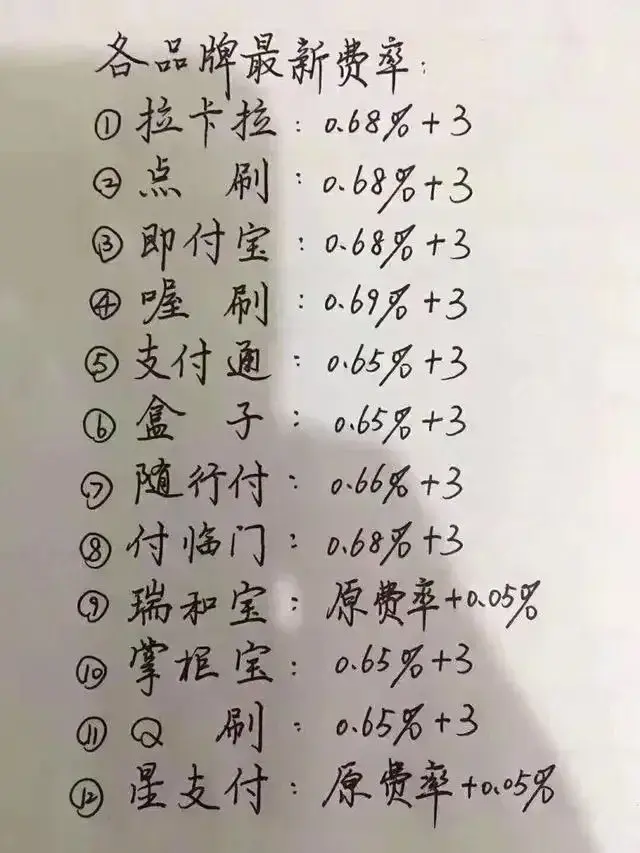 各品牌最新费率:
①拉卡拉:0.68%+3
②点 刷:0.68%+3
③即付宝:0.68%+3
④喔 刷:0.69%+3
⑤支付通:0.65%+3
⑥盒 子:0.65%+3
⑦随行付:0.66%+3
⑧付临门:0.68%+3
⑨瑞和宝:原费率+0.05%
⑩掌柜宝:0.65%+3
⑪Q 刷:0.65%+3
⑫星支付:原费率+0.05%